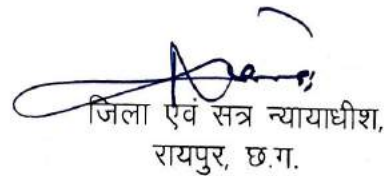 जिला एवं सत्र न्यायाधीश,
रायपुर, छ.ग.